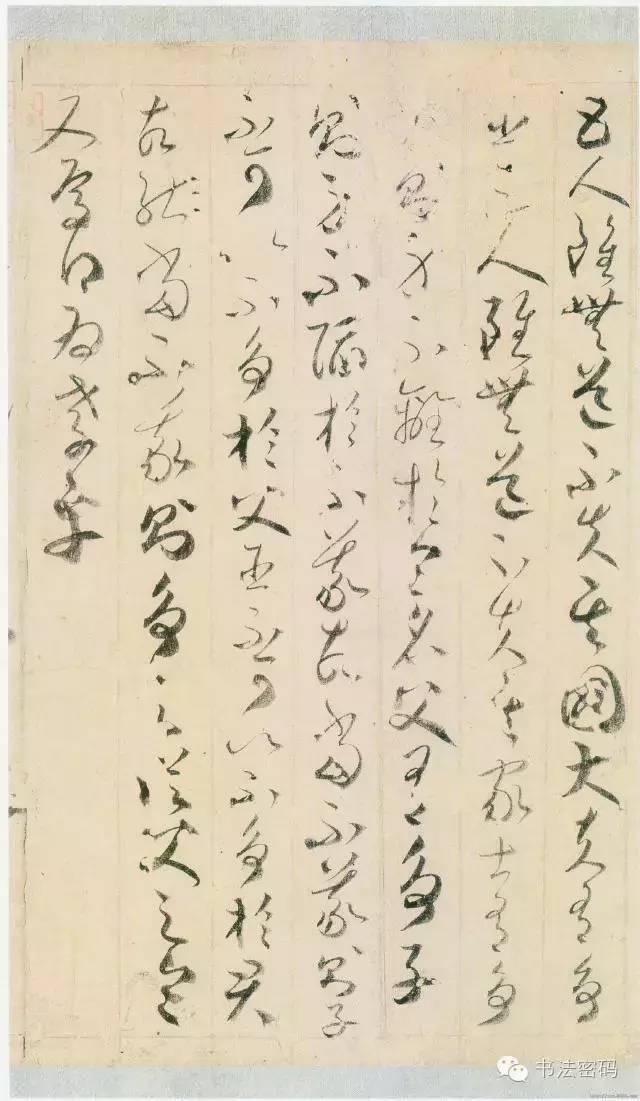 五人雖無道不失其國大夫有爭
臣三人雖無道不失其家士有爭
友則身不離於令名父有爭子
則身不陷於不義故當不義則子
不可以不爭於父臣不可以不爭於君
故當不義則爭之從父之令
又焉得為孝乎
书法密码